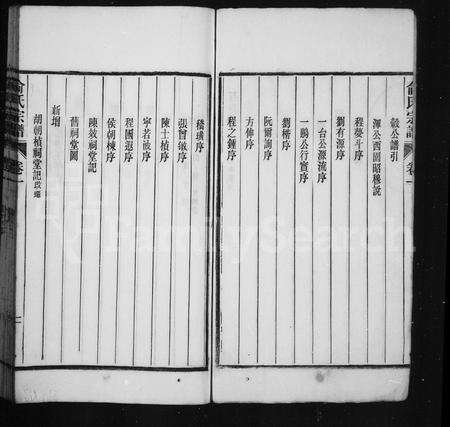 俞氏宗譜 卷一
毅公譜引
渾公西園昭穆說
程夢斗序
劉有源序
一台公源流序
一鵬公行實序
劉楷序
阮爾詢序
方伸序
程之鍾序
稽璜序
張曾敏序
陳士楨序
甯若敂序
程國遐序
侯朝棟序
陳效祠堂記
舊祠堂圖
新增
胡朝楨祠堂記改遷
俞氏宗譜 卷一
FamilySearch